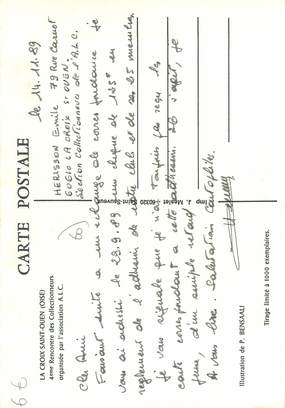 CARTE POSTALE
LA CROIX SAINT-OUEN (OISE)
4ème Rencontre des Collectionneurs
organisée par l'association A.L.C.
le 14.11.89
HERISSON Emile 79 Rue Carnot
60610 LA CROIX St OUEN.
Section Collectionneurs de l'A.L.C.
Cher Ami
Faisant suite a un échange de correspondance je
vous ai adressé le 23.9.89 un chèque de 135F en
règlement de l'adhésion de notre club et de ses 25 membres
je vous signale que je n'ai toujours pas reçu la
carte correspondant a cette adhésion. Il s'agit, je
pense, d'un simple retard
A vous lire. Salutation Cartophile.
Imp. J. Merlet - 60320 - St-Sauveur
Illustration de P. BENSALI
Tirage limité à 1000 exemplaires.
66